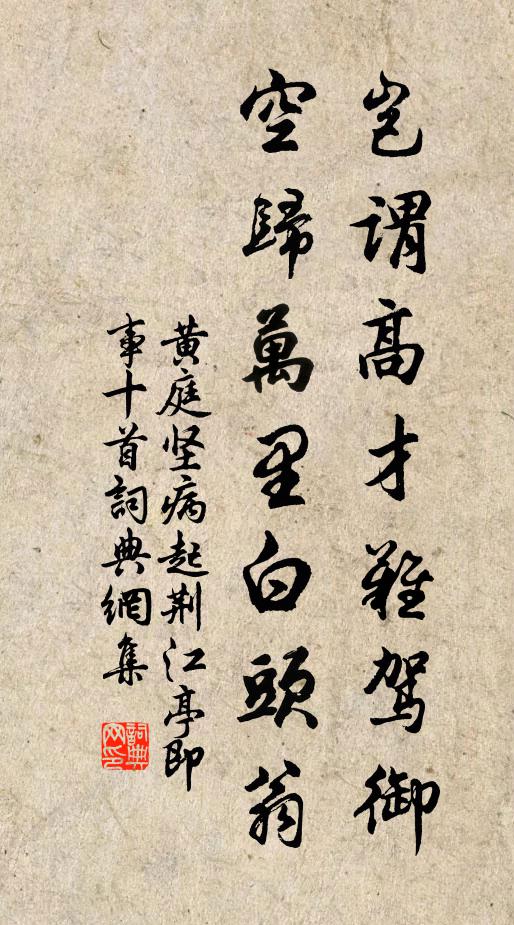 豈謂高才難駕御
空歸萬里白頭翁
黄庭坚病起荆江亭即
事十首詞典網集
詞典
网印